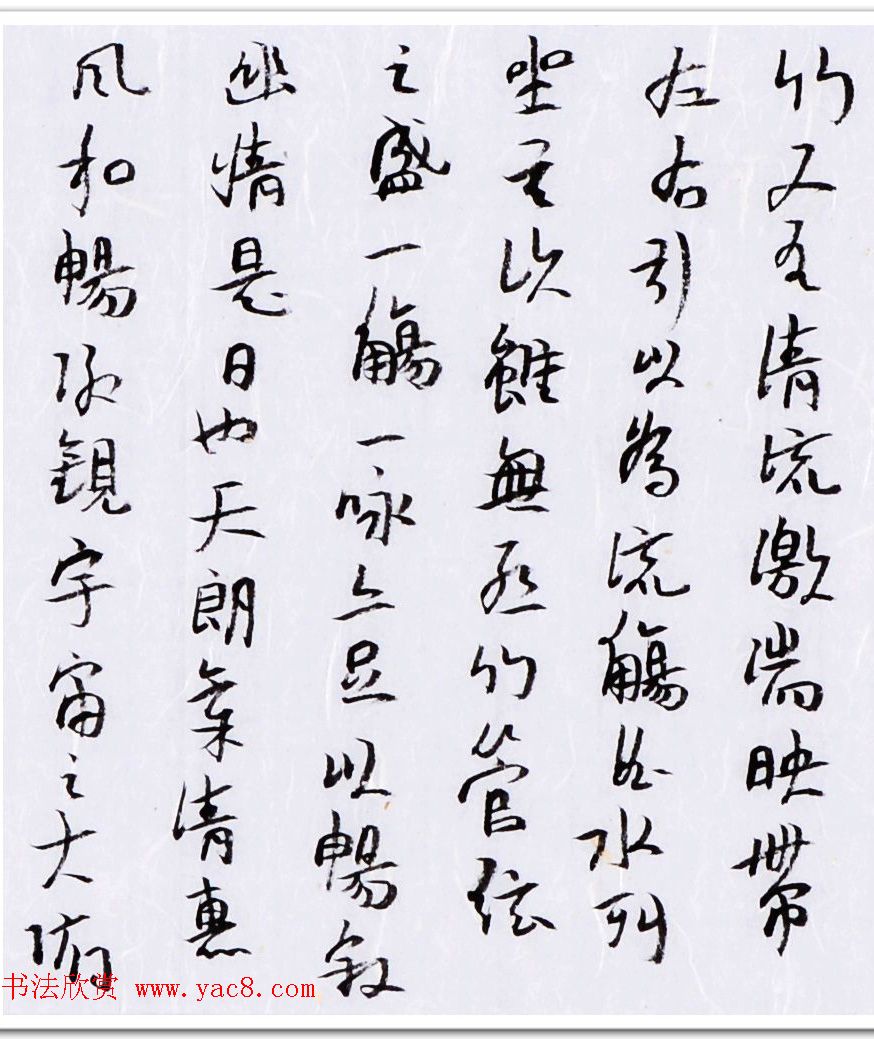 竹又有清流激湍映帶
左右引以為流觴曲水列
坐其次雖無絲竹管弦
之盛一觴一咏亦足以暢叙
幽情是日也天朗氣清惠
風和暢仰觀宇宙之大俯
书法欣赏 www.yac8.com